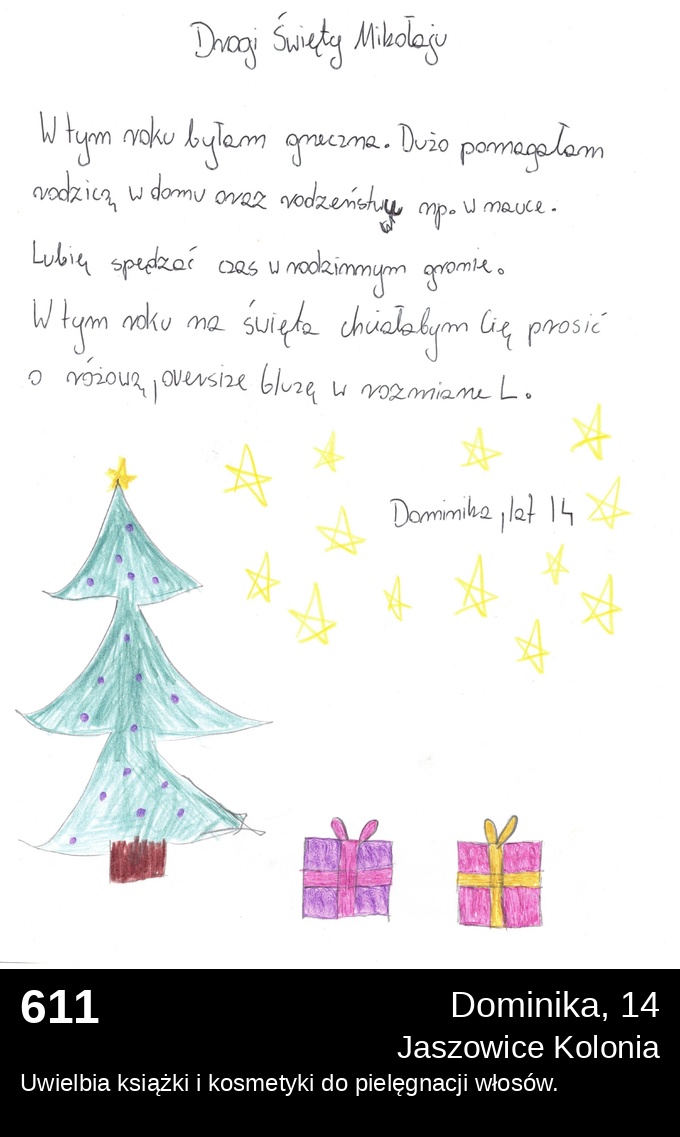 Drogi Święty Mikołaju
W tym roku byłam grzeczna. Dużo pomagałam
rodzicą w domu oraz rodzeństwu np. w nauce.
Lubię spędzać czas w rodzinnym gronie.
W tym roku na święta chciałabym Cię prosić
o różową, oversize bluzę w rozmiarze L.
Dominika, lat 14
611
Dominika, 14
Jaszowice Kolonia
Uwielbia książki i kosmetyki do pielęgnacji włosów.